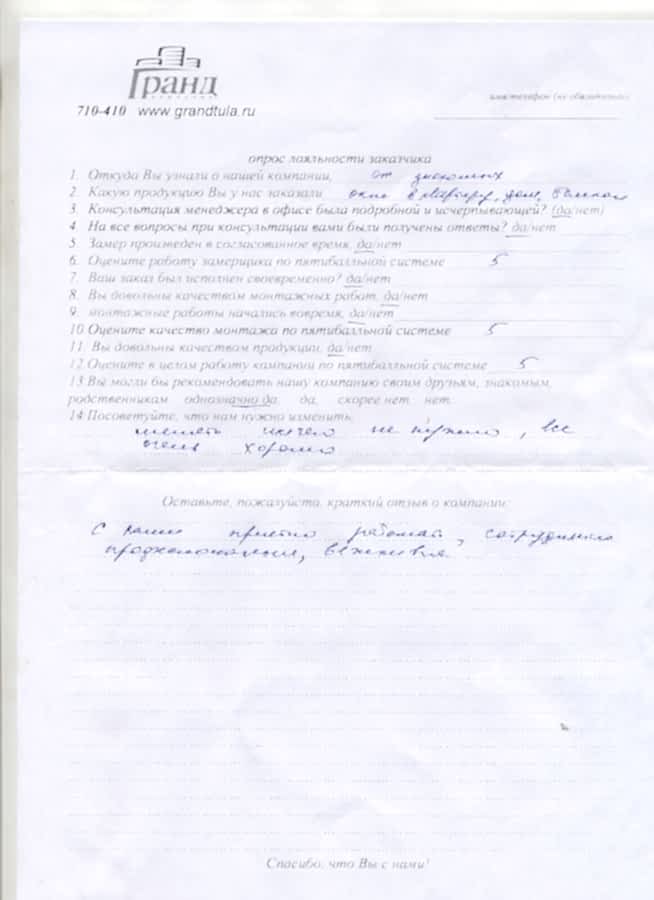 Гранд
710-410 www.grandtula.ru
имя/телефон (не обязательно)
опрос лояльности заказчика
1. Откуда Вы узнали о нашей компании, от знакомых
2. Какую продукцию Вы у нас заказали окно в квартиру, дом, балкон
3. Консультация менеджера в офисе была подробной и исчерпывающей? (да/нет)
4. На все вопросы при консультации вами были получены ответы? да/нет
5. Замер произведен в согласованное время, да/нет
6. Оцените работу замерщика по пятибалльной системе 5
7. Ваш заказ был исполнен своевременно? да/нет
8. Вы довольны качеством монтажных работ, да/нет
9. монтажные работы начались вовремя, да/нет
10.Оцените качество монтажа по пятибалльной системе 5
11. Вы довольны качеством продукции, да/нет
12.Оцените в целом работу компании по пятибалльной системе 5
13.Вы могли бы рекомендовать нашу компанию своим друзьям, знакомым,
родственникам однозначно да да, скорее нет нет.
14.Посоветуйте, что нам нужно изменить,
менять ничего не нужно, все
очень хорошо
Оставьте, пожалуйста, краткий отзыв о компании:
С вами приятно работать, сотрудники
вежливые
Спасибо, что Вы с нами!